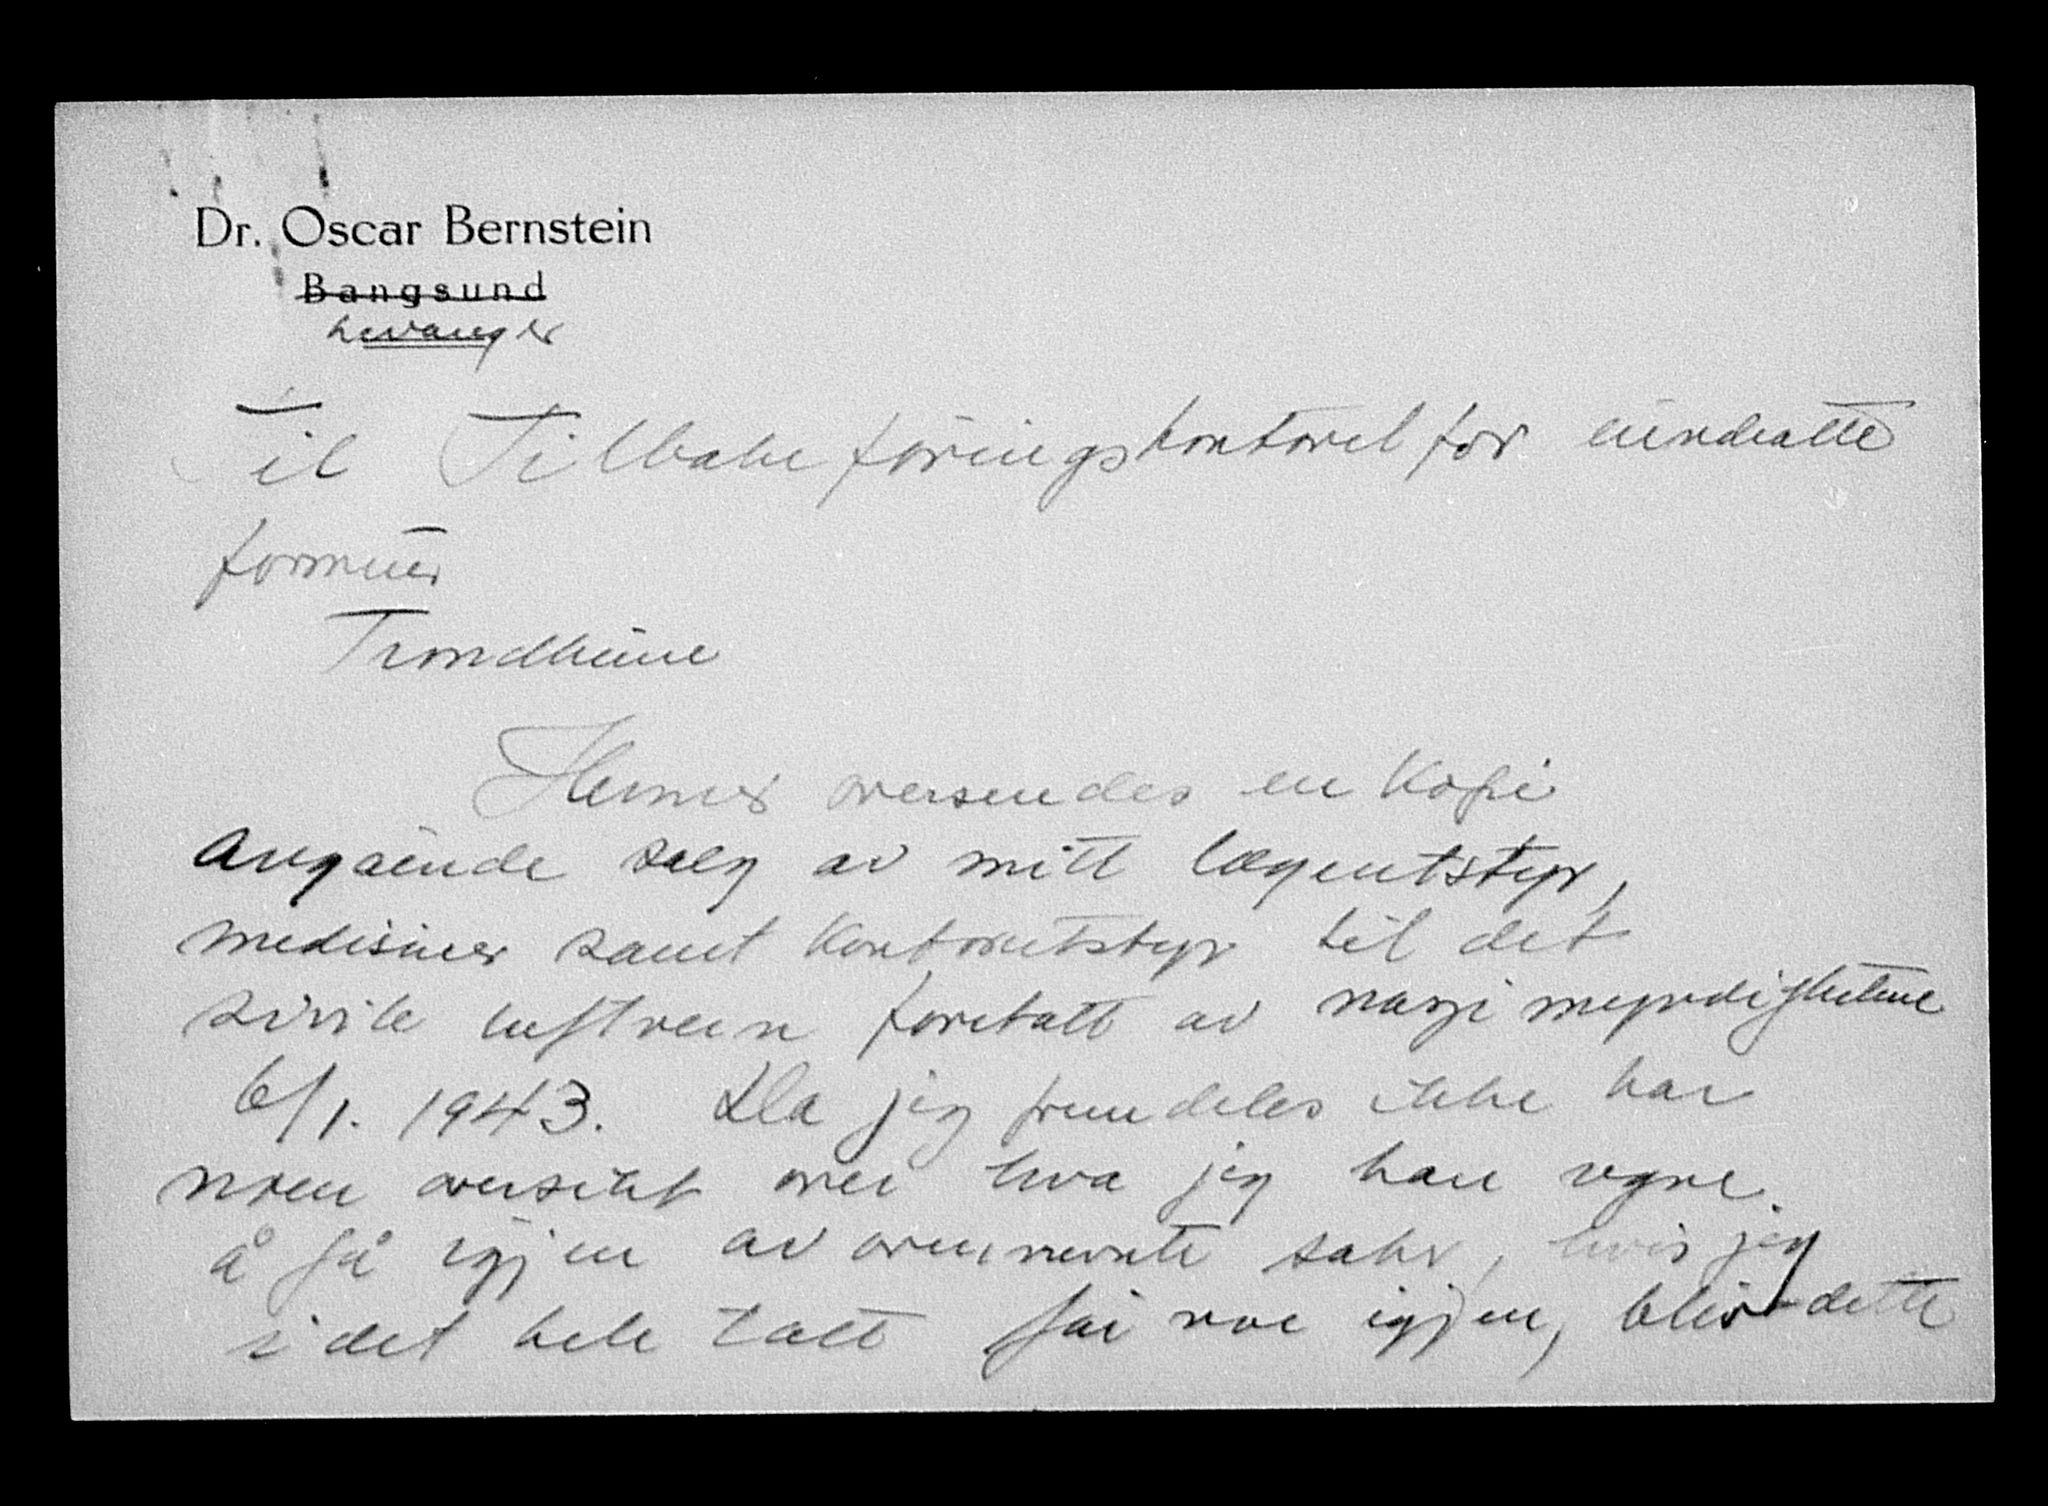 Dr. Oscar Bernstein
Bangsund
Levanger
Til Tilbakeføringskontoret for inndratte
formuer
Trondheim
Hermed oversendes en kopi
angående salg av mitt lægeutstyr,
medisiner samt kontorutstyr til det
sivile luftvern foretatt av nazimyndighetene
6/1. 1943. Da jeg fremdeles ikke har
noen oversikt over hva jeg kan regne
å få igjen av ovennevnte saker, hvis jeg
i det hele tatt får noe igjen, blir dette